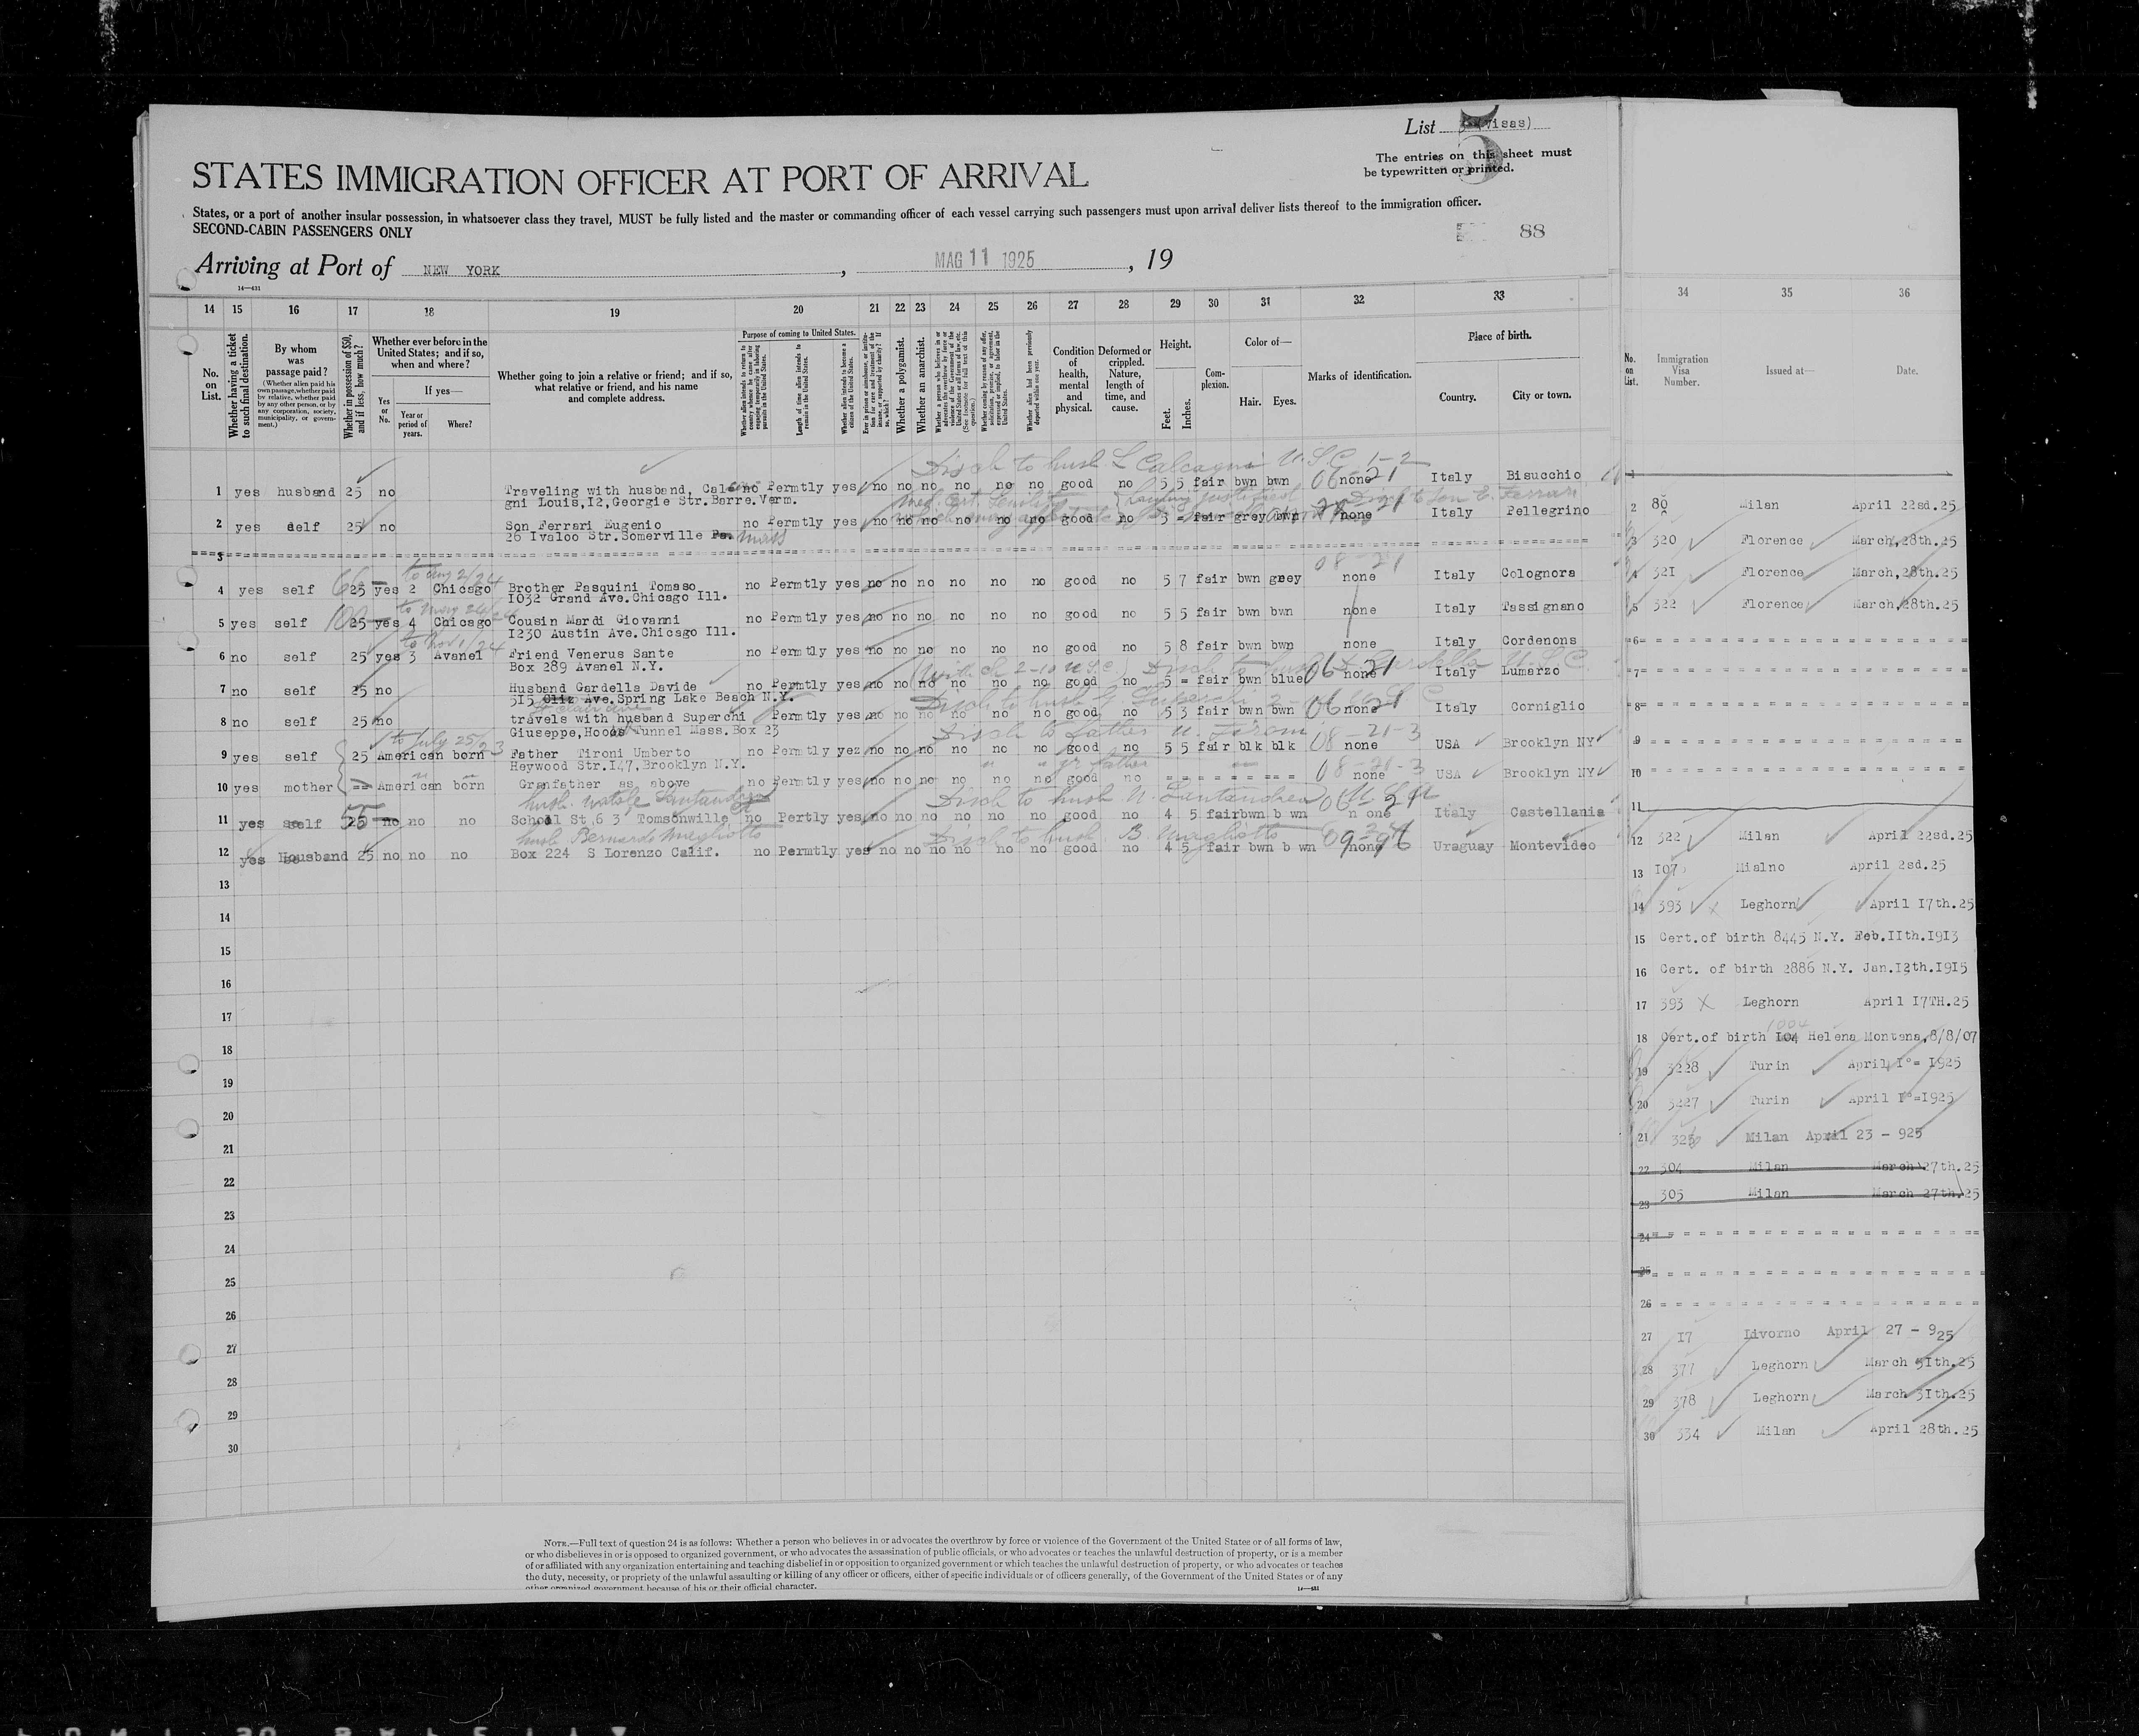 List (Visas)
5
The entries on this sheet must
be typewritten or printed.
STATES IMMIGRATION OFFICER AT PORT OF ARRIVAL
States, or a port of another insular possession, in whatsoever class they travel, MUST be fully listed and the master or commanding officer of each vessel carrying such passengers must upon arrival deliver lists thereof to the immigration officer.
SECOND-CABIN PASSENGERS ONLY
88
Arriving at Port of NEW YORK, MAG 11 1925, 19
14—431
14 15 16 17 18 19 20 21 22 23 24 25 26 27 28 29 30 31 32 33
No. on List.
Whether having a ticket to such final destination.
By whom was passage paid?
(Whether alien paid his own passage, whether paid by relative, whether paid by any other person, or by any corporation, society, municipality, or government.)
Whether in possession of $50, and if less, how much?
Whether ever before in the United States; and if so, when and where?
Yes or No.
If yes—
Year or period of years.
Where?
Whether going to join a relative or friend; and if so, what relative or friend, and his name and complete address.
Purpose of coming to United States.
Length of time alien intends to remain in the United States.
Whether alien intends to become a citizen of the United States.
Whether a polygamist.
Whether an anarchist.
Condition of health, mental and physical.
Deformed or crippled. Nature, length of time, and cause.
Height.
Feet.
Inches.
Complexion.
Color of—
Hair. Eyes.
Marks of identification.
Place of birth.
Country. City or town.
Disch to husb. L Calcagni U.S.C. 1-2
1 yes husband 25 no Traveling with husband, Calca no Permtly yes no no no no no no good no 5 5 fair bwn bwn 06 none 21 Italy Bisucchio
gni Louis,I2,Georgie Str.Barre.Verm.
2 yes delf 25 no Son Ferrari Eugenio no Permtly yes no no no no no no good no 5 = fair grey bwn none Italy Pellegrino
26 Ivaloo Str.Somerville Pa. Mass
3
08-21
to Aug 2/24
4 yes self 66 25 yes 2 Chicago Brother Pasquini Tomaso no Permtly yes no no no no no no good no 5 7 fair bwn grey none Italy Colognora
I032 Grand Ave.Chicago Ill.
5 yes self 100 25 yes 4 Chicago Cousin Mardi Giovanni no Permtly yes no no no no no no good no 5 5 fair bwn bwn none Italy Tassignano
I230 Austin Ave.Chicago Ill.
to Nov 1/24
6 no self 25 yes 3 Avanel Friend Venerus Sante no Permtly yes no no no no no no good no 5 8 fair bwn bwn none Italy Cordenons
Box 289 Avanel N.Y.
7 no self 25 no Husband Gardella Davide no Permtly yes no no no no no no good no 5 = fair bwn blue 06 none 21 Italy Lumarzo
5I5 Ave.Spring Lake Beach N.Y.
8 no self 25 no travels with husband Superchi Permtly yes no no no no no no good no 5 3 fair bwn bwn 06 none 21 Italy Corniglio
Giuseppe,Hoods Tunnel Mass.Box 23
to July 25/23
Disch to father U. Tironi
9 yes self 25 American born Father Tironi Umberto no Permtly yez no no no no no no good no 5 5 fair blk blk 08-21-3 none USA Brooklyn NY
Heywood Str.I47,Brooklyn N.Y.
" " gr father
10 yes mother == American born Granfather as above no Permtly yes no no no no no no good no = = = = = = = = 08-21-3 none USA Brooklyn NY
husb. Natale Santandrea Disch to husb N. Santandrea
11 yes self 55 25 no no no School St,6 3 Tomsonville no Pertly yes no no no no no no good no 4 5 fairbwn b wn n one Italy Castellania
husb Bernardo Megliotto Disch to husb B. Magliotto
12 yes Housband 25 no no no Box 224 S Lorenzo Calif. no Permtly yes no no no no no no good no 4 5 fair bwn b wn none Uraguay Montevideo
13
14
15
16
17
18
19
20
21
22
23
24
25
26
27
28
29
30
NOTE.—Full text of question 24 is as follows: Whether a person who believes in or advocates the overthrow by force or violence of the Government of the United States or of all forms of law,
or who disbelieves in or is opposed to organized government, or who advocates the assassination of public officials, or who advocates or teaches the unlawful destruction of property, or is a member
of or affiliated with any organization entertaining and teaching disbelief in or opposition to organized government or which teaches the unlawful destruction of property, or who advocates or teaches
the duty, necessity, or propriety of the unlawful assaulting or killing of any officer or officers, either of specific individuals or of officers generally, of the Government of the United States or of any
other organized government because of his or their official character.
14—431
34 35 36
No. on List.
Immigration Visa Number.
Issued at—
Date.
1
2 80 Milan April 22sd.25
3 320 Florence March,28th.25
4 32I Florence March,28th.25
5 322 Florence March,28th.25
6
7
8
9
10
11
12 322 Milan April 22sd.25
13 I07 Mialno April 2sd.25
14 393 Leghorn April I7th.25
15 Cert.of birth 8445 N.Y. Feb.IIth.I9I3
16 Cert. of birth 2886 N.Y. Jan.I2th.I9I5
17 393 X Leghorn April I7TH.25
1004
18 Cert.of birth I04 Helena Montana,8/8/07
19 3228 Turin April I°= I925
20 3227 Turin April I°=I925
21 Milan April 23 - 925
22 304 Milan March 27th.25
23 305 Milan March 27th.25
24
25
26
27 I7 Livorno April 27 - 925
28 377 Leghorn March 3Ith.25
29 378 Leghorn March 3Ith.25
30 334 Milan April 28th.25